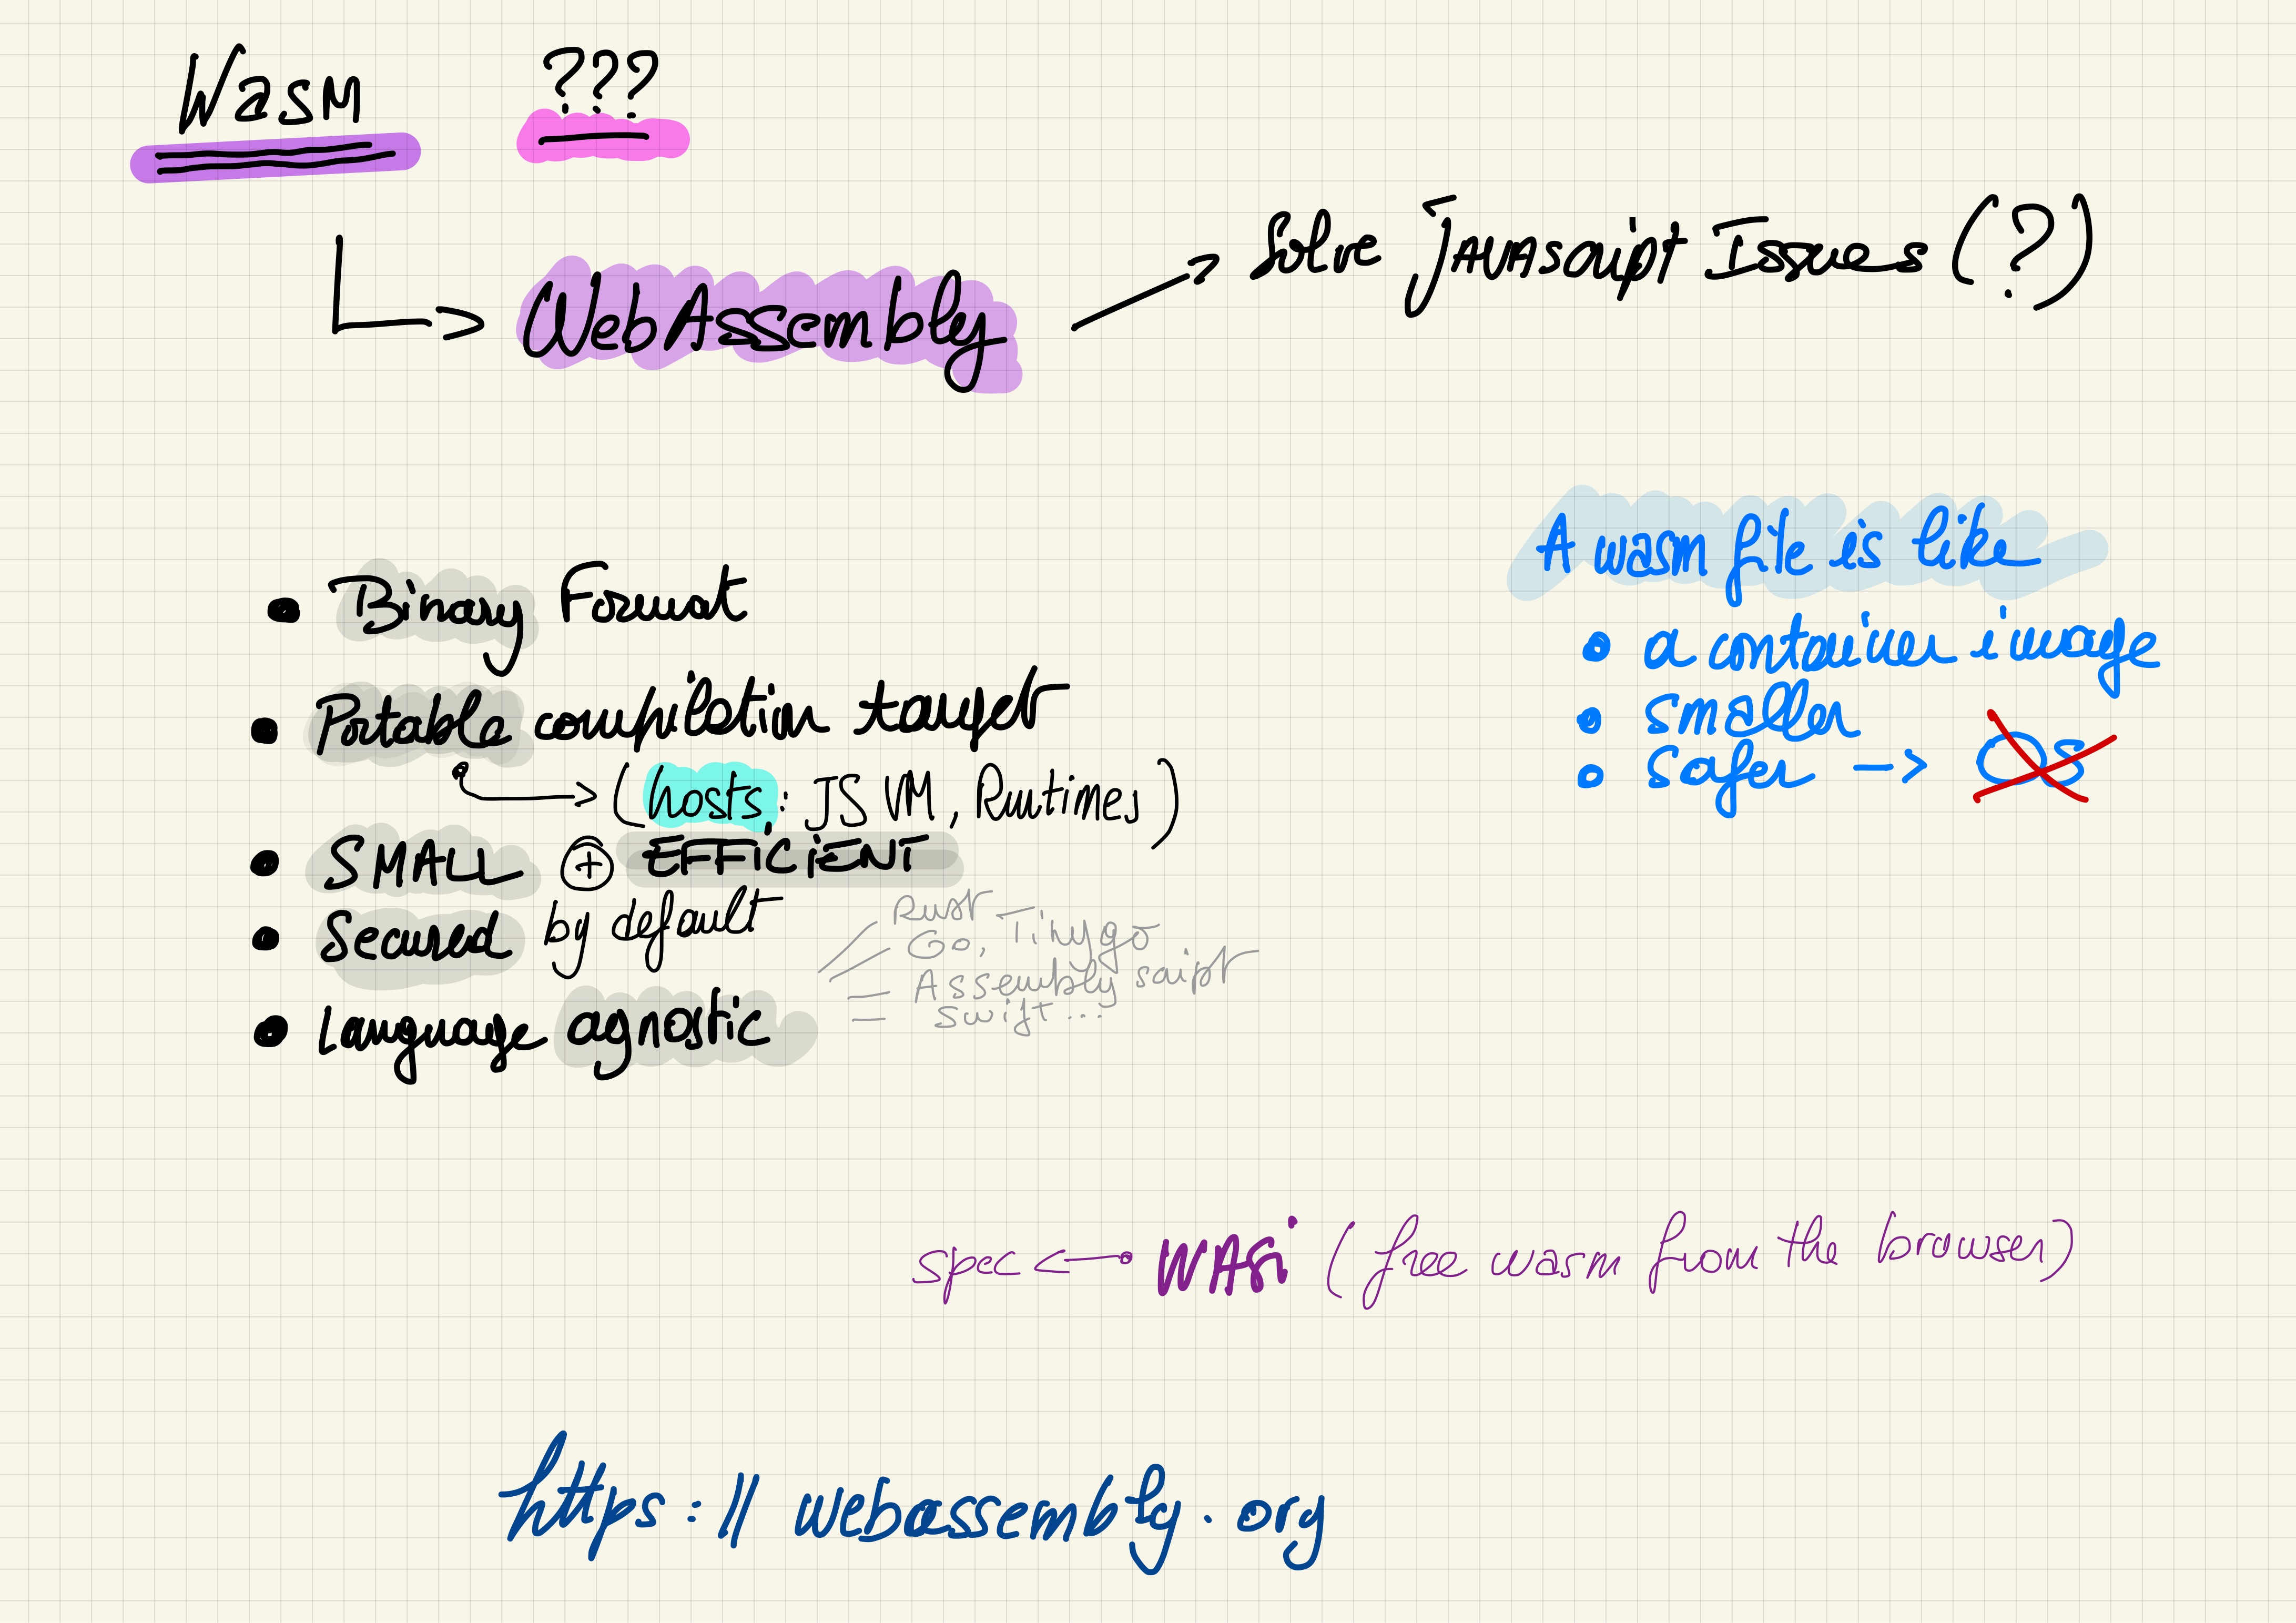 Wasm ???
WebAssembly
Solve Javascript Issues (?)
• Binary Format
• Portable compilation target
(hosts: JS VM, Runtimes)
• SMALL + EFFICIENT
• Secured by default
• Language agnostic
Rust
Go, Tinygo
Assembly script
Swift...
A wasm file is like
• a container image
• smaller
• safer -> OS
spec <- WASi (free wasm from the browser)
https://webassembly.org